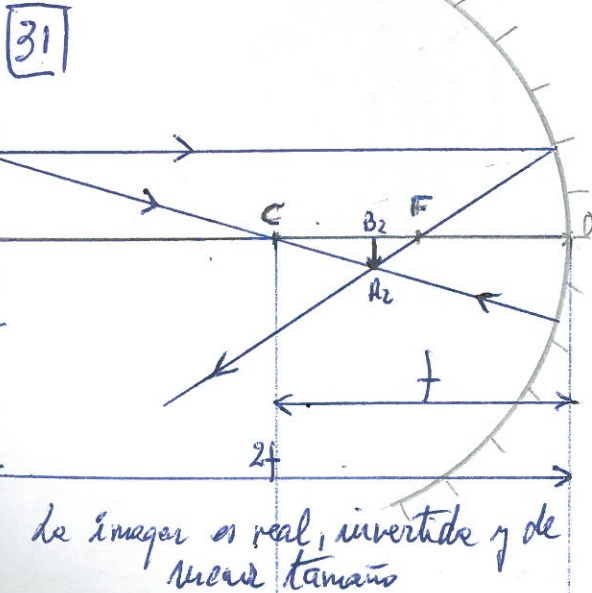 31
C
B2
F
O
A2
f
2f
La imagen es real, invertida y de
menor tamaño